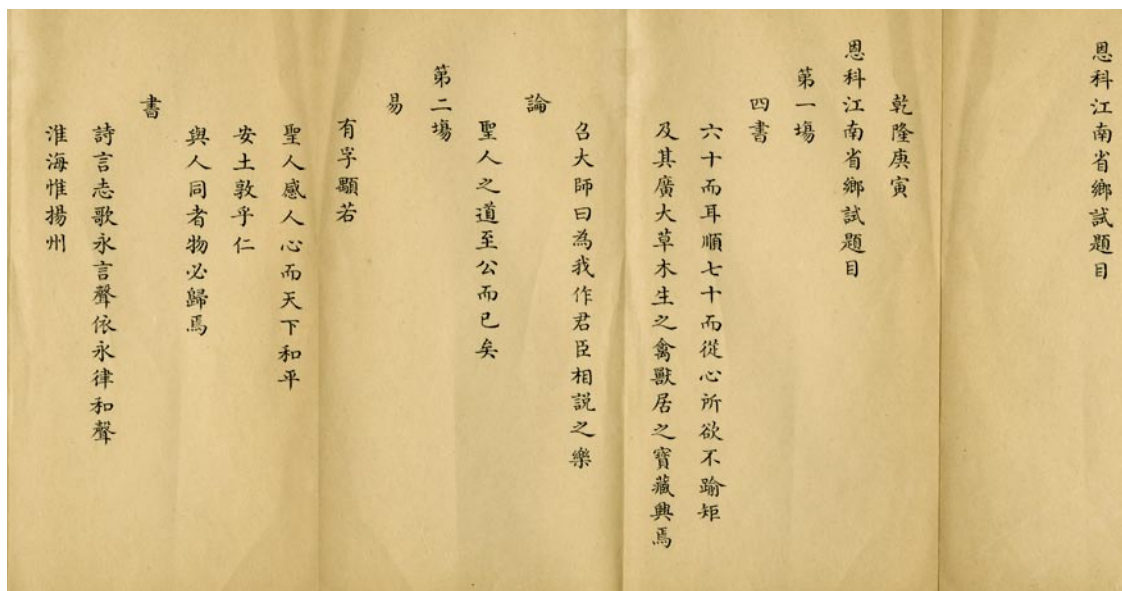 恩科江南省鄉試題目
乾隆庚寅
恩科江南省鄉試題目
第一塲
四書
六十而耳順七十而從心所欲不踰矩
及其廣大草木生之禽獸居之寶藏興焉
召大師曰為我作君臣相説之樂
論
聖人之道至公而已矣
第二塲
易
有孚顒若
聖人感人心而天下和平
安土敦乎仁
與人同者物必歸焉
書
詩言志歌永言聲依永律和聲
淮海惟揚州